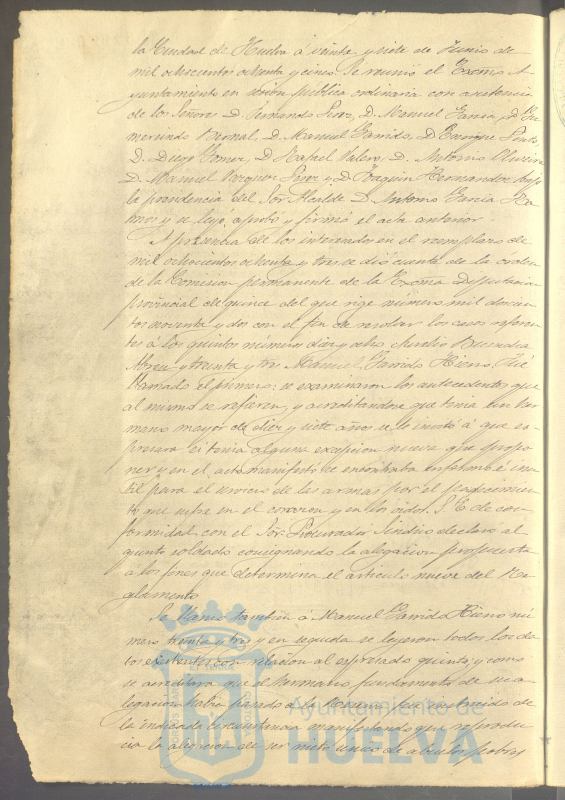 la Ciudad de Huelva á veinte y siete de Junio de
mil ochocientos ochenta y cinco Se reunió el Excmo A-
yuntamiento en sesion publica ordinaria con asistencia
de los Señores D. Fernando Perez, D. Manuel Garcia, D. Gu-
mersindo Bernal, D. Manuel Garrido, D. Enrique
D. Diego Gomez, D. Rafael Valero, D. Antonio Oliveira
D. Manuel Vazquez Perez y D. Joaquin Hernandez bajo
la presidencia del Sor Alcalde D. Antonio Garcia Ra-
mos y se leyó, aprobó y firmó el acta anterior.
A presencia de los interesados en el reemplazo de
mil ochocientos ochenta y tres se dió cuenta de la orden
de la Comision permanente de la Excma Diputacion
provincial de quince del que rige número mil doscien-
tos noventa y dos con el fin de resolver los casos referen-
tes á los quintos números diez y ocho Aurelio Buendia
Abreu y treinta y tres Manuel Garrido Hierro. Fué
llamado el primero: se examinaron los antecedentes que
al mismo se refieren, y acreditandose que tenia un her-
mano mayor de diez y siete años se le invitó á que es-
presara si tenia alguna excepcion nueva que propo-
ner y en el acto manifestó se encontraba enfermo é inu-
til para el servicio de las armas por el padecimien-
to que sufre en el corazon y en los oidos. S. E. de con-
formidad con el Sor. Procurador Sindico declaró al
quinto soldado consignando la alegacion propuesta
a los fines que determina el articulo nueve del Re-
glamento
Se llamó tambien á Manuel Garrido Hierro nú-
mero treinta y tres y en seguida se leyeron todos los da-
tos existentes con relacion al espresado quinto; y como
se acreditara que el hermano fundamento de su a-
legacion habia pasado a la
la indicada circunstancia manifestando que reprodu-
cia la alegacion de ser nieto unico de abuelos pobres
Ayuntamiento de
HUELVA